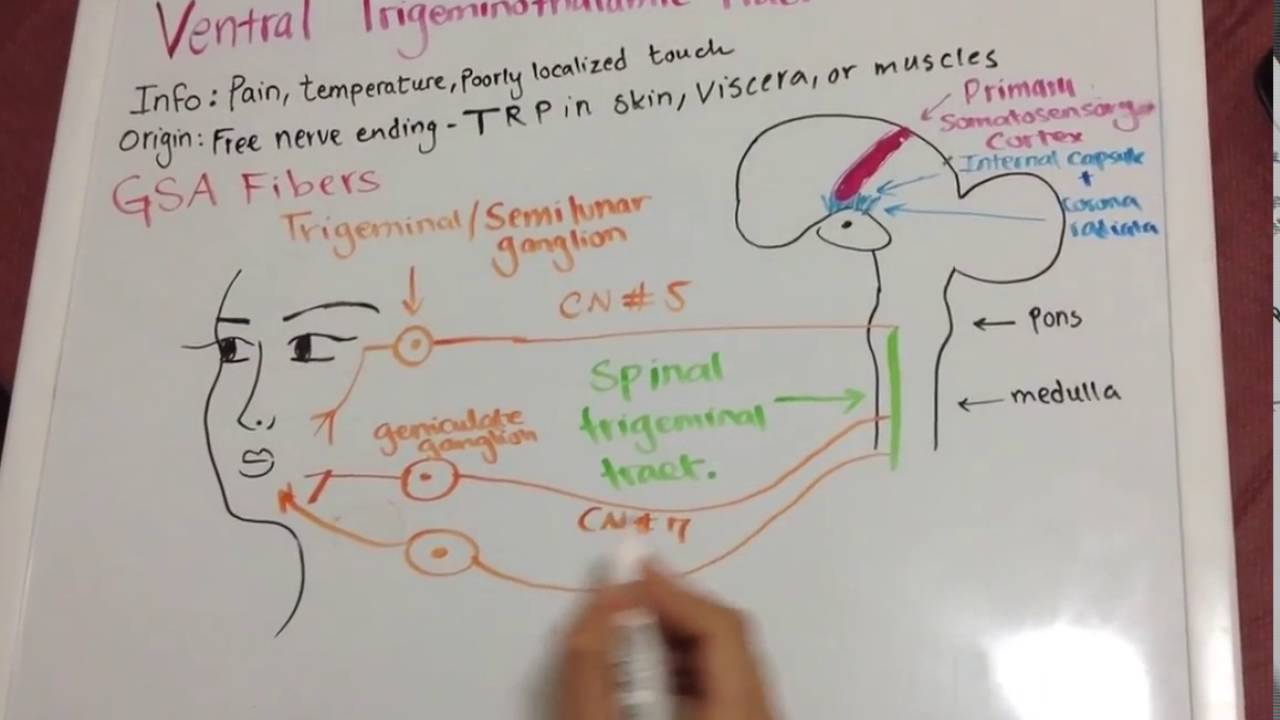 Ventral Trigeminothalamic
Info: Pain, temperature, Poorly localized touch
Origin: Free nerve ending - TRP in skin, Viscera, or muscles
GSA Fibers
Primary
Somatosensory
Cortex
Internal capsule
+
Corona
radiata
Trigeminal/Semilunar
ganglion
CN # 5
Pons
Spinal
trigeminal
tract.
medulla
geniculate
ganglion
CN # 7